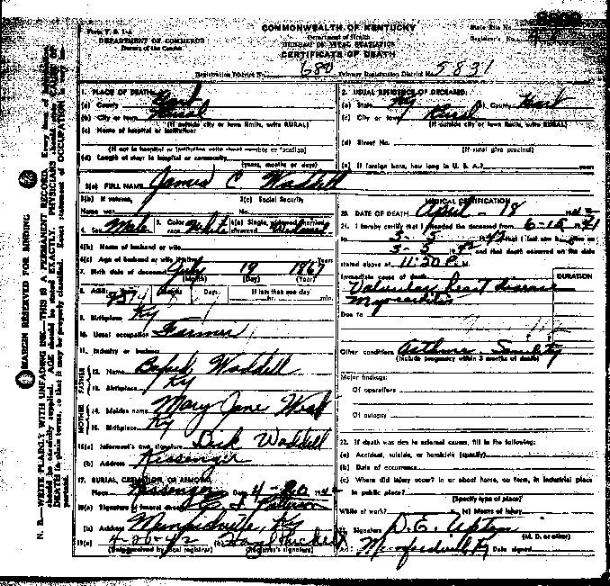 Form V. S. 1-A
DEPARTMENT OF COMMERCE
Bureau of the Census
COMMONWEALTH OF KENTUCKY
Department of Health
BUREAU OF VITAL STATISTICS
CERTIFICATE OF DEATH
State File No.
Registrar's No.
Registration District No. 680 Primary Registration District No. 5831
1. PLACE OF DEATH:
(a) County Hart
(b) City or town Rural
(If outside city or town limits, write RURAL)
(c) Name of hospital or institution:
(If not in hospital or institution write street number or location)
(d) Length of stay: In hospital or community
(years, months or days)
2. USUAL RESIDENCE OF DECEASED:
(a) State Ky (b) County Hart
(c) City or town Rural
(If outside city or town limits, write RURAL)
(d) Street No.
(If rural give precinct)
(e) If foreign born, how long in U. S. A.? years
3(a) FULL NAME James C Waddell
3(b) If veteran, 3(c) Social Security
Name war No.
4. Sex Male 5. Color or race White 6(a) Single, widowed, married, divorced Widowed
6(b) Name of husband or wife
6(c) Age of husband or wife if alive
7. Birth date of deceased July 19 1867
(Month) (Day) (Year)
8. AGE: 74 8 If less than one day
hr. min.
9. Birthplace Ky
10. Usual occupation Farmer
11. Industry or business
FATHER
12. Name Waddell
13. Birthplace Ky
MOTHER
14. Maiden name Mary Jane West
15. Birthplace Ky
16(a) Informant's own signature Waddell
(b) Address Kessinger
17. BURIAL, CREMATION, OR REMOVAL
Place Kessinger Date 4-20 1942
18(a) Signature of funeral director
(b) Address Munfordville, Ky
19(a) 4-20-42 (b)
(Date received by local registrar) (Registrar's signature)
MEDICAL CERTIFICATION
20. DATE OF DEATH April - 18 1942
21. I hereby certify that I attended the deceased from 6-15-41
to 3-5-42 that I last saw h alive on
3-5-42 and that death occurred on the date
stated above at 11:50 P. M.
Immediate cause of death DURATION
Valvular heart disease
Myocarditis
Due to
Other conditions Asthma Senility
(Include pregnancy within 3 months of death)
Major findings:
Of operations
Of autopsy
22. If death was due to external causes, fill in the following:
(a) Accident, suicide, or homicide (specify)
(b) Date of occurrence
(c) Where did injury occur? In or about home, on farm, in industrial place
in public place?
(Specify type of place)
While at work? (e) Means of injury
23. Signature D. E. Upton
(M. D. or other)
Ad: Munfordville, Ky Date signed
MARGIN RESERVED FOR BINDING
N. B.—WRITE PLAINLY WITH UNFADING INK—THIS IS A PERMANENT RECORD. Every item of information
should be carefully supplied. AGE should be stated EXACTLY. PHYSICIANS should state CAUSE OF
DEATH in plain terms, so that it may be properly classified. Exact statement of OCCUPATION is very important.